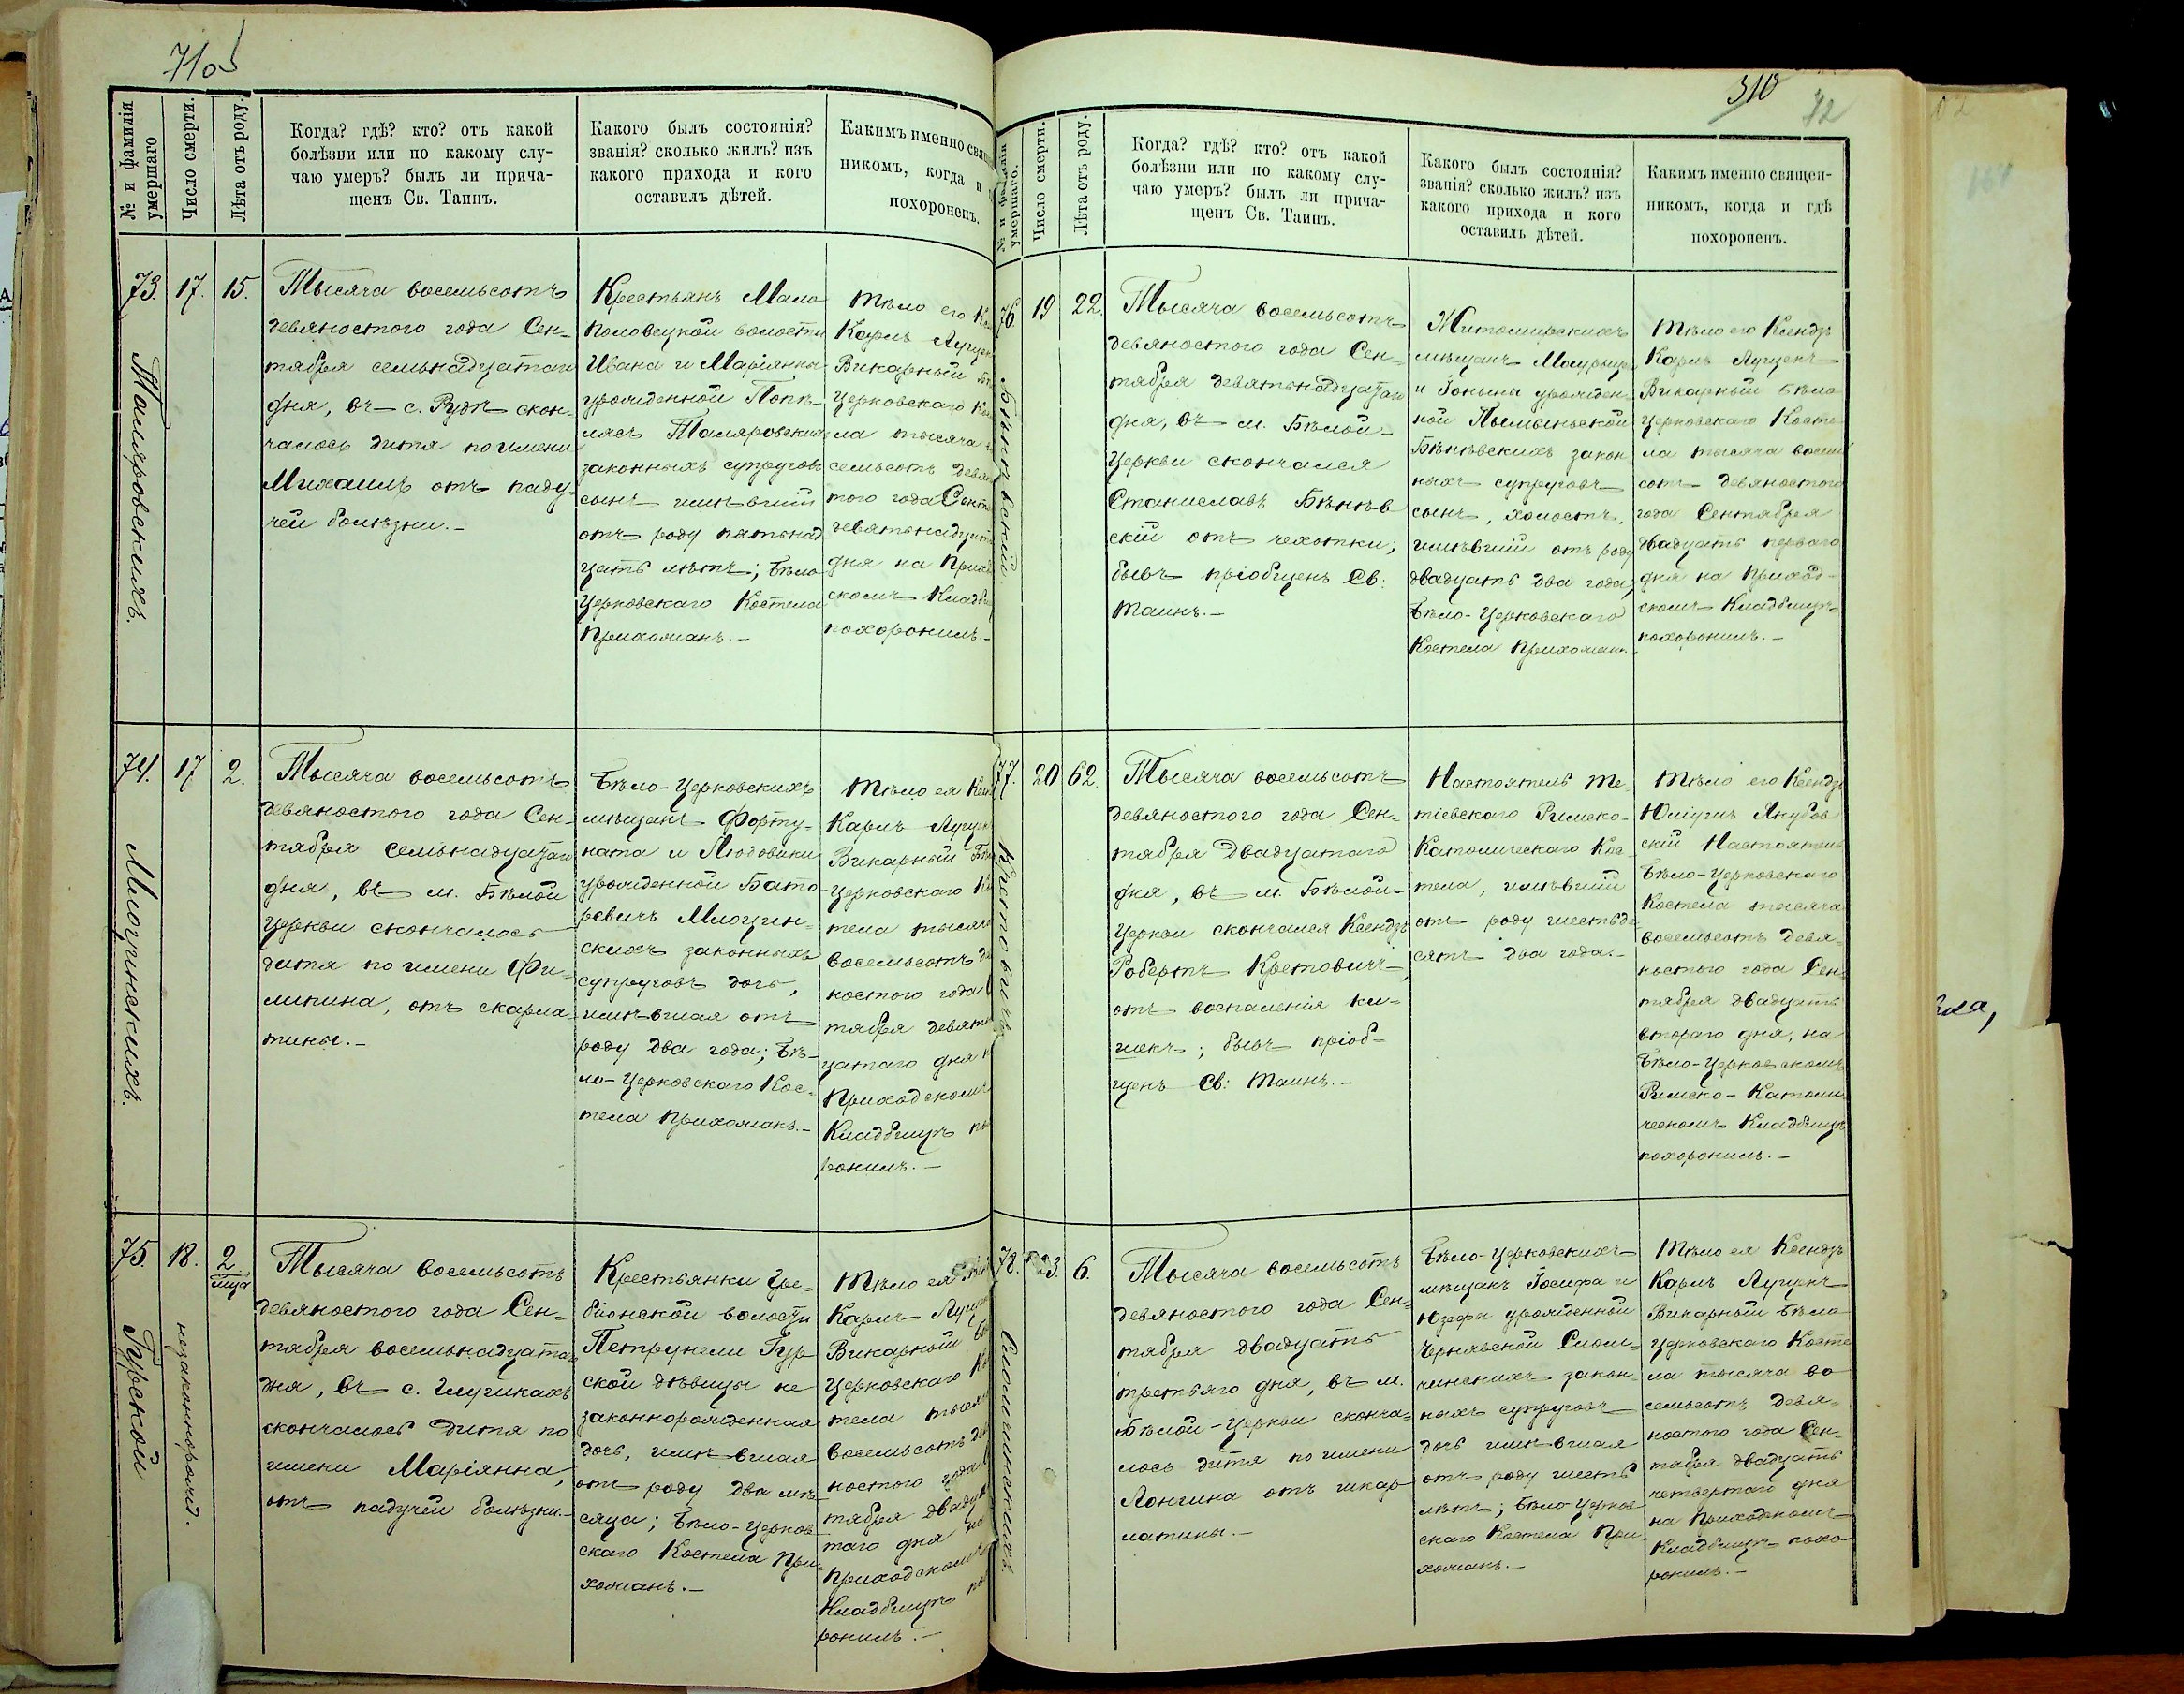 71об
№ и фамилія умершаго
Число смерти.
Лѣта отъ роду.
Когда? гдѣ? кто? отъ какой
болѣзни или по какому слу-
чаю умеръ? былъ ли прича-
щенъ Св. Таинъ.
Какого былъ состоянія?
званія? сколько жилъ? изъ
какого прихода и кого
оставилъ дѣтей.
Какимъ именно свя
никомъ, когда и
похороненъ.
73.
Таляровскихъ.
17.
15.
Тысяча восемьсотъ
девяностого года Сен-
тября семьнадцатаго
дня, въ с. Рудѣ скон-
чалось дитя по имени
Михаилъ отъ паду-
чей болѣзни.–
Крестьянъ Мало
половецкой волости
Ивана и Маріянны
урожденной
Таляровскихъ
законныхъ супруговъ
сынъ имѣвшій
отъ роду пятьнад
цать лѣтъ; Бѣло
Церковскаго Костела
Прихожанъ.–
Тѣло его
Карлъ
Викарный
Церковскаго
ла тысяча
семьсотъ
того года Сент
девятьнадцат
дня на Прихо
скомъ Кладби
похоронилъ.–
74.
Млоцинскихъ.
17
2.
Тысяча восемьсотъ
девяностого года Сен-
тября семьнадцатаго
дня, въ м. Бѣлой
Церкви скончалось
дитя по имени Фи-
липина, отъ скарла-
тины.–
Бѣло-Церковскихъ
мѣщанъ Форту-
ната и Людовики
урожденной Бато-
ревичъ Млоцин-
скихъ законныхъ
супруговъ дочь,
имѣвшая отъ
роду два года; Бѣ-
ло-Церковскаго Кос-
тела Прихожанъ.–
Тѣло ея
Карлъ
Викарный
Церковскаго
тела тысяча
восемьсотъ
ностого года
тября девят
цатаго дня
Приходскомъ
Кладбищѣ
ронилъ.–
75.
Гурской
18.
незаконнорожд.
2
мца
Тысяча восемьсотъ
девяностого года Сен-
тября восемьнадцатаго
дня, въ с. Глушкахъ
скончалось дитя по
имени Маріянна,
отъ падучей болѣзни.–
Крестьянки Гре-
біонской волости
Петрунели Гур
ской дѣвицы не
законнорожденная
дочь, имѣвшая
отъ роду два мѣ-
сяца; Бѣло-Церков
скаго Костела При-
хожанъ.–
Тѣло ея
Карлъ
Викарный
Церковскаго
тела тысяча
восемьсотъ
ностого года
тября двадца
таго дня на
Приходскомъ
Кладбищѣ
ронилъ.–
310
72
№ и фамилія умершаго.
Число смерти.
Лѣта отъ роду.
Когда? гдѣ? кто? отъ какой
болѣзни или по какому слу-
чаю умеръ? былъ ли прича-
щенъ Св. Таинъ.
Какого былъ состоянія?
званія? сколько жилъ? изъ
какого прихода и кого
оставилъ дѣтей.
Какимъ именно священ-
никомъ, когда и гдѣ
похороненъ.
76.
Бѣнѣвскій.
19
22.
Тысяча восемьсотъ
девяностого года Сен-
тября девятьнадцатаго
дня, въ м. Бѣлой-
Церкви скончался
Станиславъ Бѣнѣв
скій отъ чахотки;
бывъ пріобщенъ Св.
Таинъ.–
Житомирскихъ
мѣщанъ
и урожден-
ной
Бѣнѣвскихъ закон
ныхъ супруговъ
сынъ, холостъ,
имѣвшій отъ роду
двадцать два года,
Бѣло-Церковскаго
Костела Прихожанъ.
Тѣло его Ксендзъ
Карлъ
Викарный Бѣло
Церковскаго Косте
ла тысяча восемь
сотъ девяностого
года Сентября
двадцать перваго
дня на Приход-
скомъ Кладбищѣ
похоронилъ.–
77.
Кретовичъ
20
62.
Тысяча восемьсотъ
девяностого года Сен-
тября двадцатаго
дня, въ м. Бѣлой-
Церкви скончался Ксендзъ
Робертъ Кретовичъ,
отъ воспаленія ки-
шекъ; бывъ пріоб-
щенъ Св: Таинъ.–
Настоятель Те-
тіевскаго Римско-
Католическаго Кос-
тела, имѣвшій
отъ роду шестьде
сятъ два года.–
Тѣло его Ксендзъ
Юліушъ Якубов
скій Настоятель
Бѣло-Церковскаго
Костела тысяча
восемьсотъ девя-
ностого года Сен-
тября двадцать
втораго дня, на
Бѣло-Церковскомъ
Римско-Католи
ческомъ Кладбищѣ
похоронилъ.–
78.
Сломчинскихъ.
23.
6.
Тысяча восемьсотъ
девяностого года Сен-
тября двадцать
третьяго дня, въ м.
Бѣлой-Церкви сконча-
лось дитя по имени
Лонгина отъ шкар
латины.–
Бѣло-Церковскихъ
мѣщанъ Іосифа и
Юзефы урожденной
Чернявской Слом-
чинскихъ закон-
ныхъ супруговъ
дочь имѣвшая
отъ роду шесть
лѣтъ; Бѣло-Церков
скаго Костела При
хожанъ.–
Тѣло ея Ксендзъ
Карлъ
Викарный Бѣло
Церковскаго Косте
ла тысяча во
семьсотъ девя-
ностого года Сен-
тября двадцать
четвертаго дня
на Приходскомъ
Кладбищѣ похо
ронилъ.–